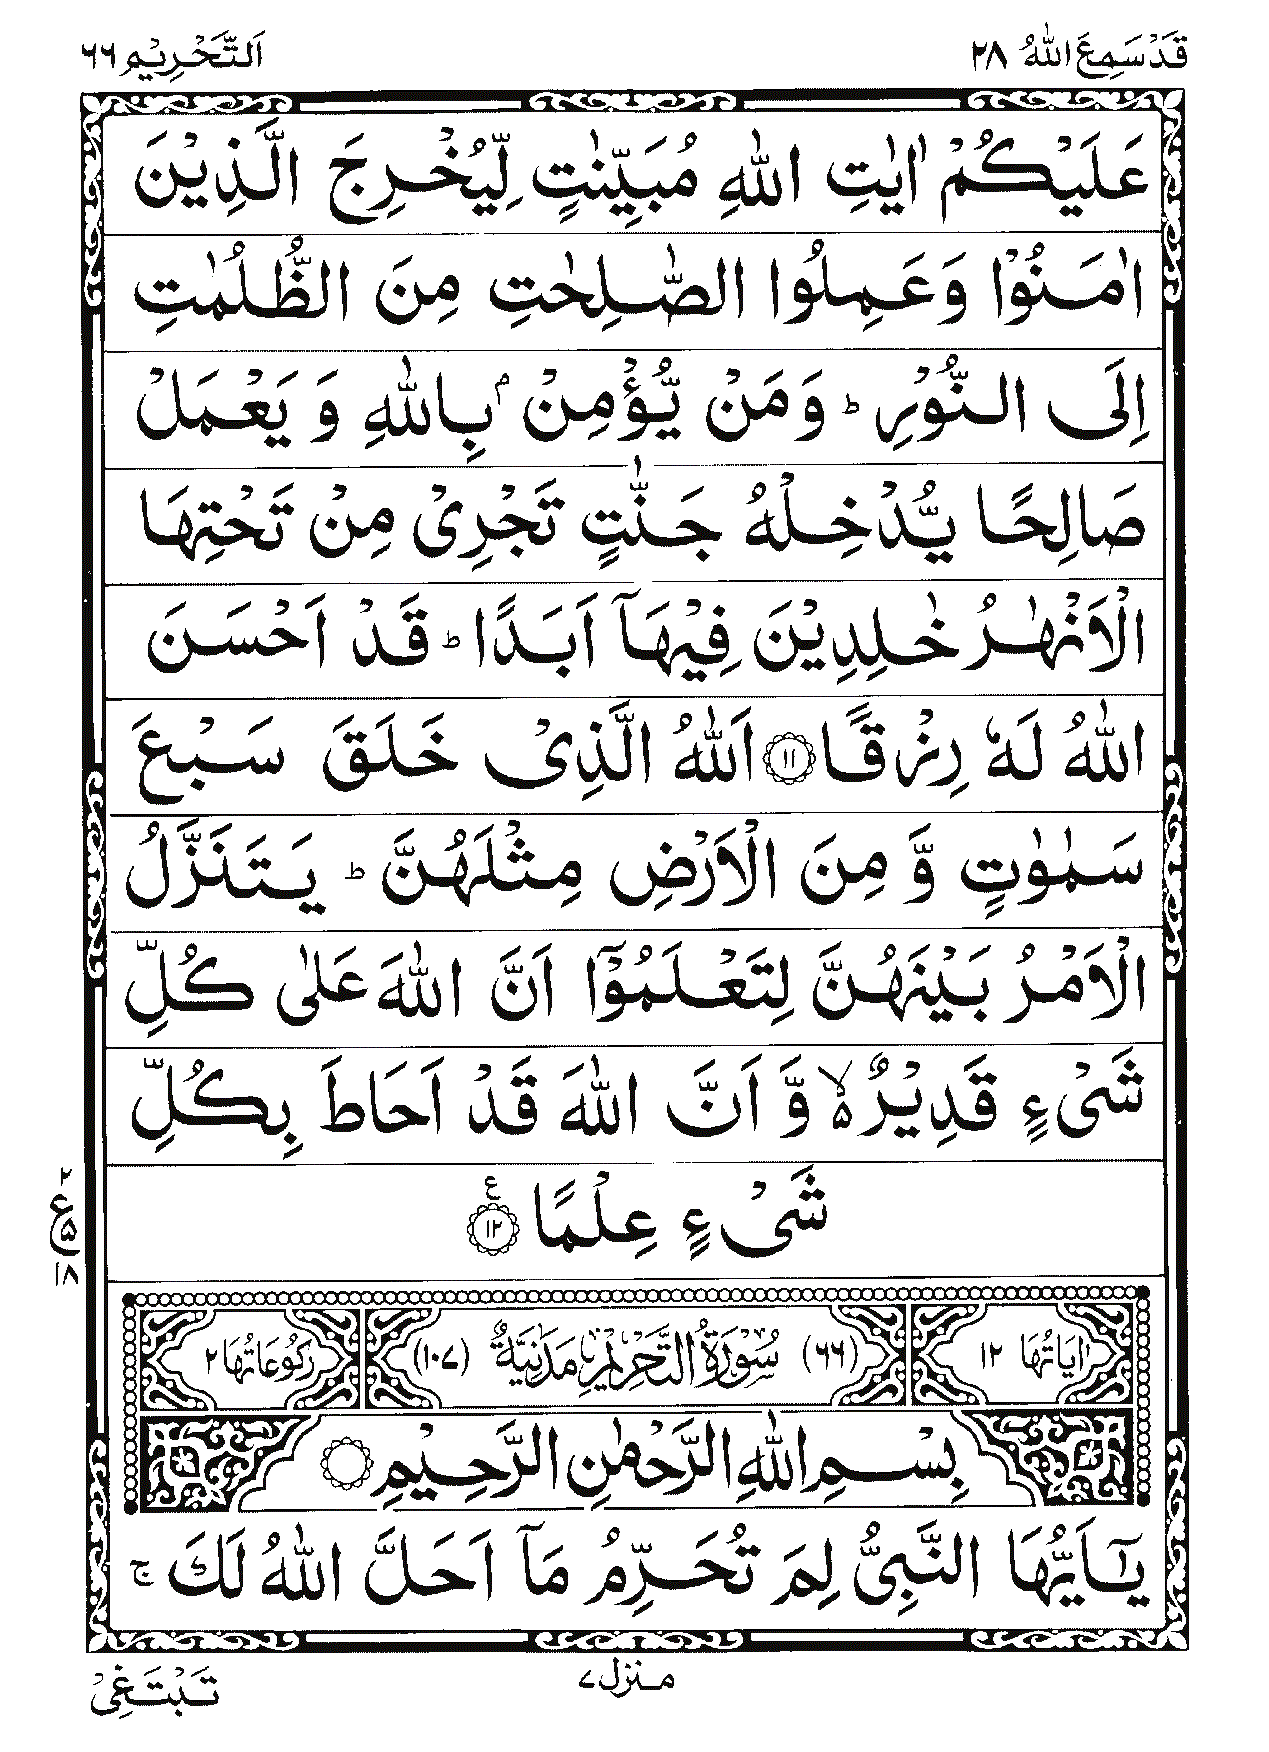 قَدْ سَمِعَ اللّٰهُ ۲۸
اَلتَّحْرِيْم ۶۶
عَلَيْكُمْ اٰيٰتِ اللّٰهِ مُبَيِّنٰتٍ لِّيُخْرِجَ الَّذِيْنَ
اٰمَنُوْا وَعَمِلُوا الصّٰلِحٰتِ مِنَ الظُّلُمٰتِ
اِلَى النُّوْرِ ؕ وَمَنْ يُّؤْمِنْۢ بِاللّٰهِ وَ يَعْمَلْ
صَالِحًا يُّدْخِلْهُ جَنّٰتٍ تَجْرِیْ مِنْ تَحْتِهَا
الْاَنْهٰرُ خٰلِدِيْنَ فِيْهَاۤ اَبَدًا ؕ قَدْ اَحْسَنَ
اللّٰهُ لَهٗ رِزْقًا ۝۱۱ اَللّٰهُ الَّذِیْ خَلَقَ سَبْعَ
سَمٰوٰتٍ وَّ مِنَ الْاَرْضِ مِثْلَهُنَّ ؕ يَتَنَزَّلُ
الْاَمْرُ بَيْنَهُنَّ لِتَعْلَمُوْۤا اَنَّ اللّٰهَ عَلٰى كُلِّ
شَیْءٍ قَدِيْرٌ ۙ۵ وَّ اَنَّ اللّٰهَ قَدْ اَحَاطَ بِكُلِّ
شَیْءٍ عِلْمًا ۝۱۲ ع
۲
ع ۵
۱۸
اٰيَاتُهَا ۱۲ (۶۶) سُوْرَةُ التَّحْرِيْمِ مَدَنِيَّةٌ (۱۰۷) رُكُوْعَاتُهَا ۲
بِسْمِ اللّٰهِ الرَّحْمٰنِ الرَّحِيْمِ ۝
يٰۤاَيُّهَا النَّبِیُّ لِمَ تُحَرِّمُ مَاۤ اَحَلَّ اللّٰهُ لَكَ ۚ
منزل ۷
تَبْتَغِیْ